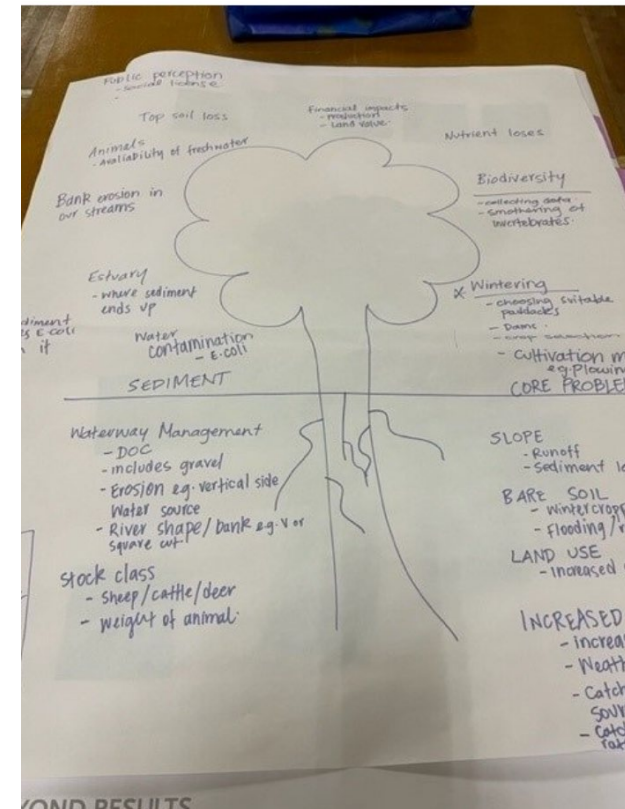 Public perception
- social license
-
Top soil loss
Financial impacts
- production
- Land value.
Nutrient loses
Animals
- availability of freshwater
Bank erosion in
our streams
Biodiversity
- collecting data.
- smothering of
invertebrates.
Estuary
- where sediment
ends up
* Wintering
- choosing suitable
paddacks
- Dams.
- crop selection
- Cultivation m
eg. Plowin
diment
E-coli
it
Water
contamination
- E-coli
SEDIMENT
CORE PROBLE
Waterway Management
- DOC
- includes gravel
- Erosion eg. vertical side
Water source
- River shape/bank eg. V or
square cut
Stock class
- Sheep/cattle/deer
- weight of animal.
SLOPE
- Runoff
- Sediment lo
BARE SOIL
- wintercrops
- flooding/r
LAND USE
- Increased
INCREASED
- increa
- Weath
- Catch
sour
- Catc
rat
YOND RESULTS